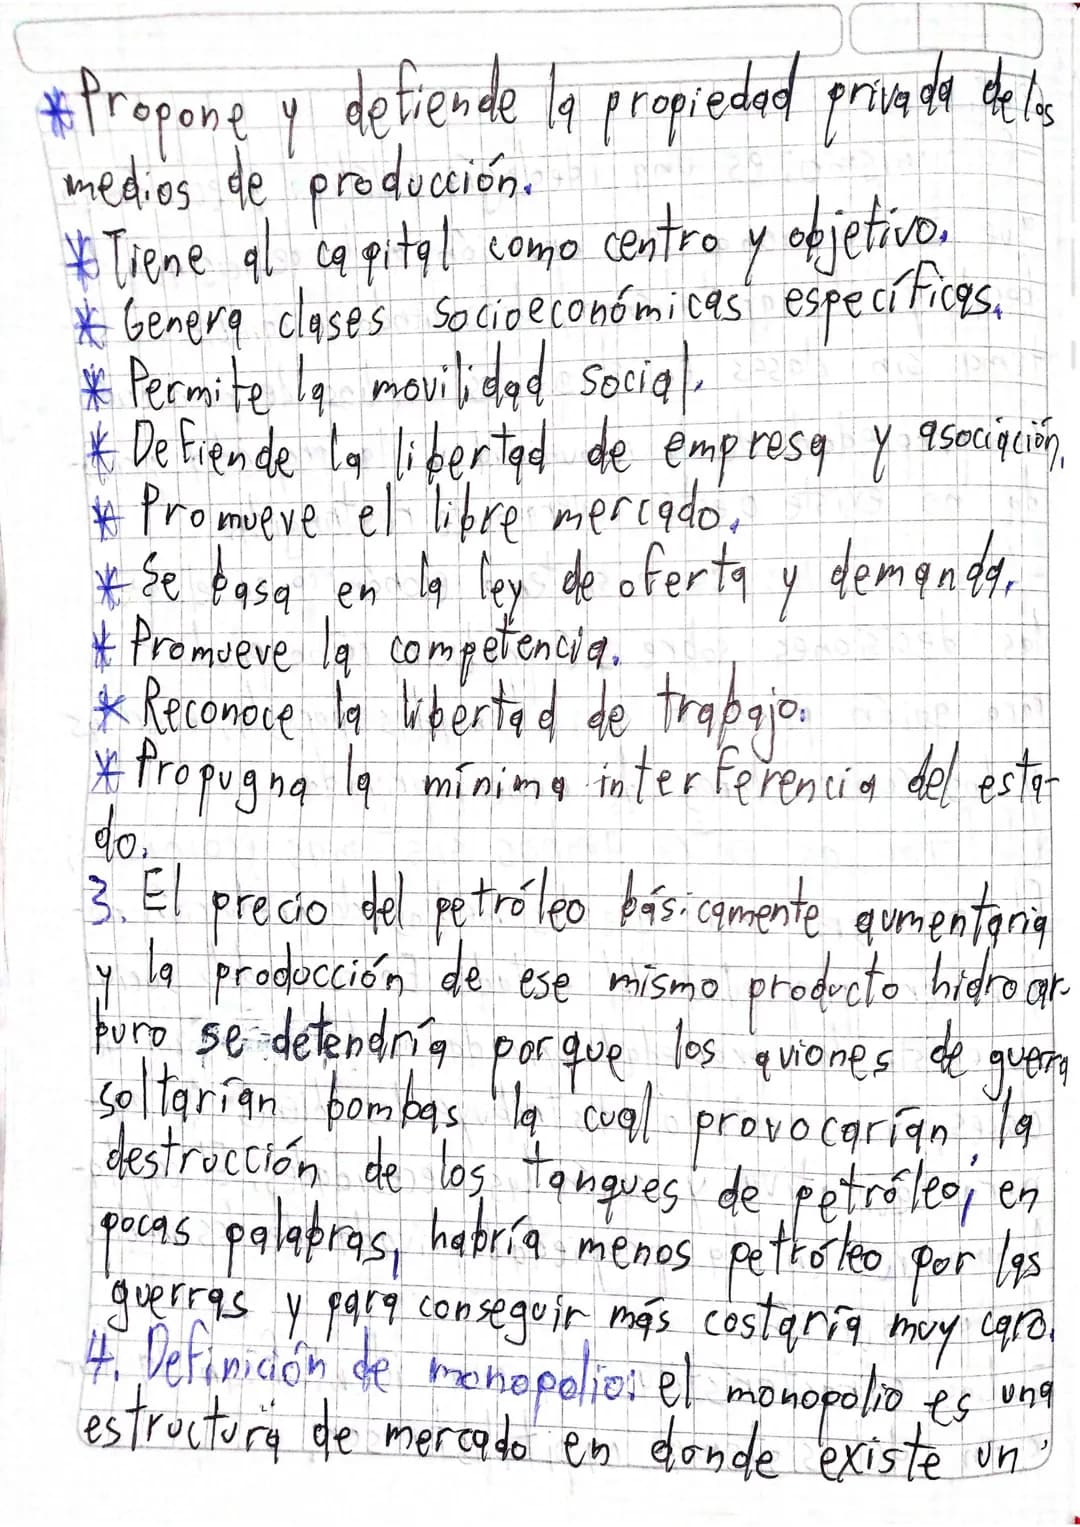 * Propone y defiende la propiedad privada de los
medios de producción.
* Tiene al capital como centro y objetivo.
* Genera clases socioeconómicas específicas.
* Permite la movilidad social.
* Defiende la libertad de empresa y asociación.
* Promueve el libre mercado.
* Se basa en la ley de oferta y demanda.
* Promueve la competencia.
* Reconoce la libertad de trabajo.
* Propugna la mínima interferencia del esta-
do.
3. El precio del petróleo básicamente aumentaria
y la producción de ese mismo producto hidrocar-
buro se detendría porque los aviones de guerra
soltarían bombas la cual provocarían la
destrucción de los tanques de petróleo; en
pocas palabras, habría menos petróleo por las
guerras y para conseguir más costaría muy caro.
4. Definición de monopolio: el monopolio es una
estructura de mercado en donde existe un